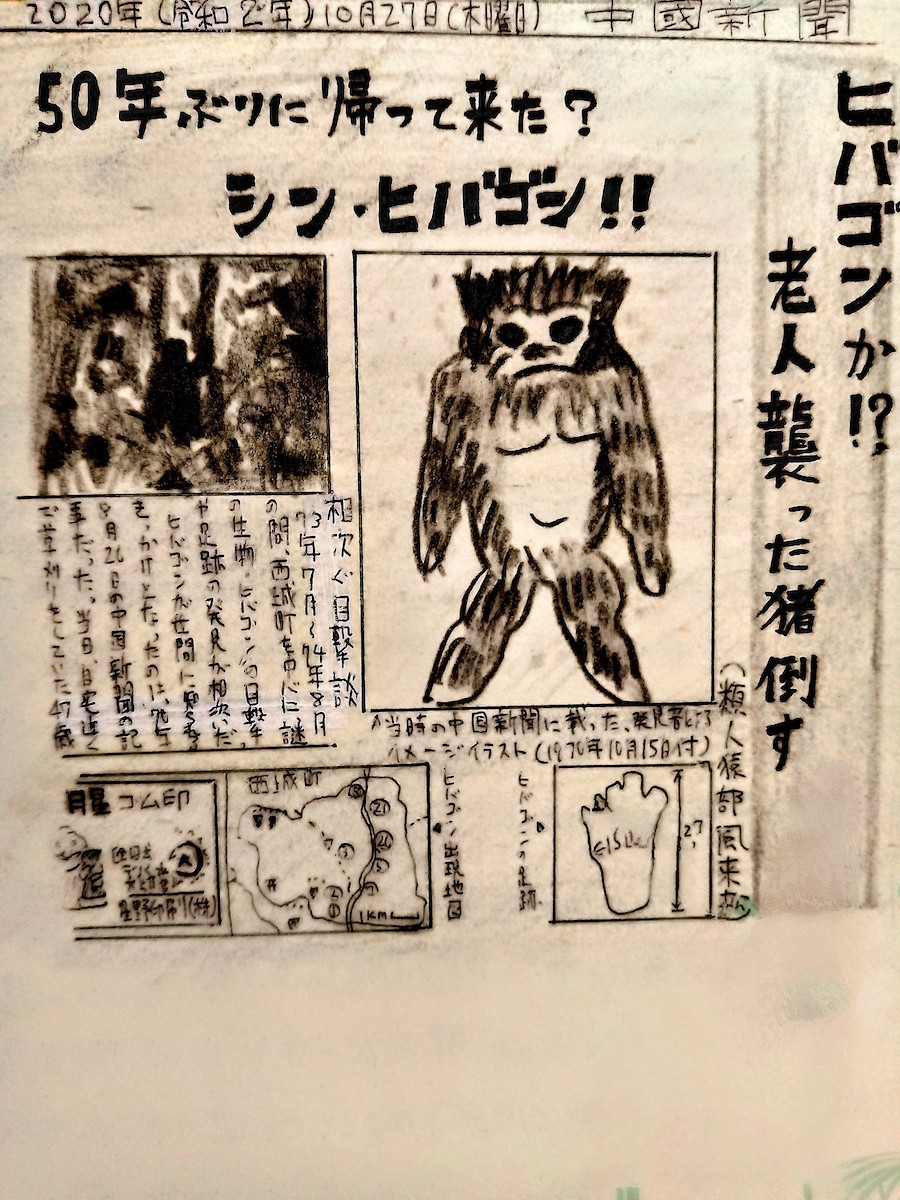 2020年(令和2年)10月27日(木曜日) 中國新聞
ヒバゴンか!?
老人襲った猪倒す
50年ぶりに帰って来た?
シン・ヒバゴン!!
(類人猿部風来
相次ぐ目撃談
73年7月〜74年8月
の間、西城町を中心に謎
の生物"ヒバゴン"の目撃
や足跡の発見が相次いだ
ヒバゴンが世間に知られる
きっかけとなったのは、
8月26日の中国新聞の記
事だった。当日、自宅近く
で草刈りをしていた47歳
当時の中国新聞に載った、発見者による
イメージイラスト(1970年10月15日付)
ヒバゴンの足跡
ヒバゴン出現地図
西城町
1KM
星野印刷(株)